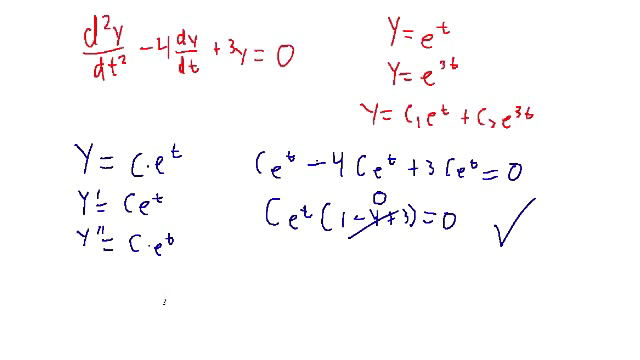 d²y/dt² - 4 dy/dt + 3y = 0
y = e^t
y = e^{3t}
y = C₁e^t + C₂e^{3t}
y = C·e^t
y' = Ce^t
y'' = C·e^t
Ce^t - 4Ce^t + 3Ce^t = 0
0
Ce^t(1-4+3) = 0 ✓